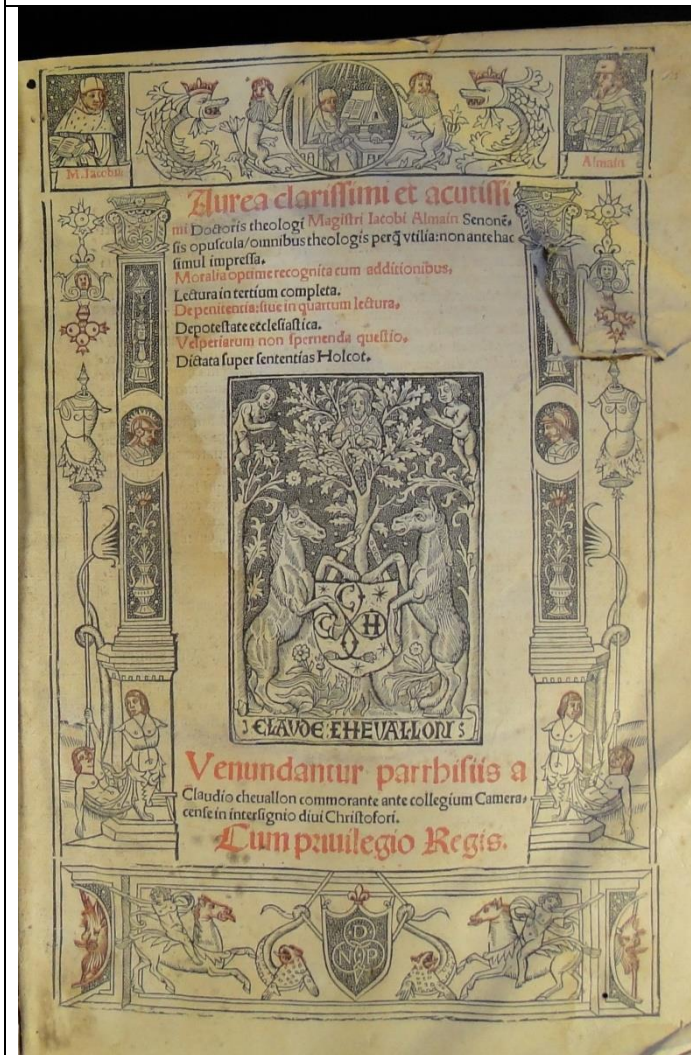 M. Jacobus
Almain
Aurea clarissimi et acutissi
mi Doctoris theologi Magistri Iacobi Almain Senonē⸗
sis opuscula/omnibus theologis perq̄ vtilia: non antehac
simul impressa.
Moralia optime recognita cum additionibus.
Lectura in tertium completa.
De penitentia: siue in quartum lectura.
De potestate ecclesiastica.
Vesperiarum non spernenda questio.
Dictata super sententias Holcot.
C C H
CLAVDE CHEVALLON
Venundantur parrhisiis a
Claudio cheuallon commorante ante collegium Camera⸗
cense in intersignio diui Christofori.
Cum priuilegio Regis.
D
N P